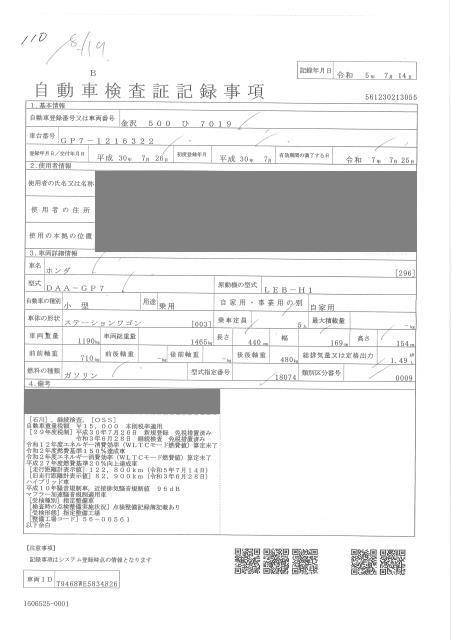 110 8/19
B
自動車検査証記録事項
記録年月日 令和 5年 7月 14日
561230213055
1.基本情報
自動車登録番号又は車両番号 金沢 500 ひ 7019
車台番号 GP7-1216322
登録年月日/交付年月日 平成 30年 7月 26日 初度登録年月 平成 30年 7月 有効期間の満了する日 令和 7年 7月 25日
2.使用者情報
使用者の氏名又は名称
使用者の住所
使用の本拠の位置
3.車両詳細情報
車名 ホンダ [296]
型式 DAA-GP7 原動機の型式 LEB-H1
自動車の種別 小型 用途 乗用 自家用・事業用の別 自家用
車体の形状 ステーションワゴン [003] 乗車定員 5人 最大積載量 -kg
車両重量 1190kg 車両総重量 1465kg 長さ 440cm 幅 169cm 高さ 154cm
前前軸重 710kg 前後軸重 -kg 後前軸重 -kg 後後軸重 480kg 総排気量又は定格出力 1.49L
燃料の種類 ガソリン 型式指定番号 18074 類別区分番号 0009
4.備考
[石川]、継続検査、[OSS]
自動車重量税額 ¥15,000 本則税率適用
[29年度税制] 平成30年7月26日 新規登録 免税措置済み
令和3年6月28日 継続検査 免税措置済み
令和12年度エネルギー消費効率(WLTCモード燃費値)算定未了
令和2年度燃費基準150%達成車
令和2年度エネルギー消費効率(WLTCモード燃費値)算定未了
平成27年度燃費基準20%向上達成車
[走行距離計表示値] 122,800km(令和5年7月14日)
[旧走行距離計表示値] 82,900km(令和3年6月28日)
ハイブリッド車
平成10年騒音規制車、近接排気騒音規制値 96dB
マフラー加速騒音規制適用車
[受検種別] 指定整備車
[検査時の点検整備実施状況] 点検整備記録簿記載あり
[受検形態] 指定整備工場
[整備工場コード] 56-00561
以下余白
[注意事項]
記録事項はシステム登録時点の情報となります
車両ID T9468WE5834826
1606525-0001